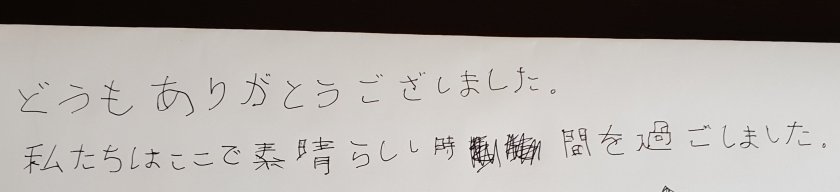 どうもありがとうございました。
私たちはここで素晴らしい時間を過ごしました。